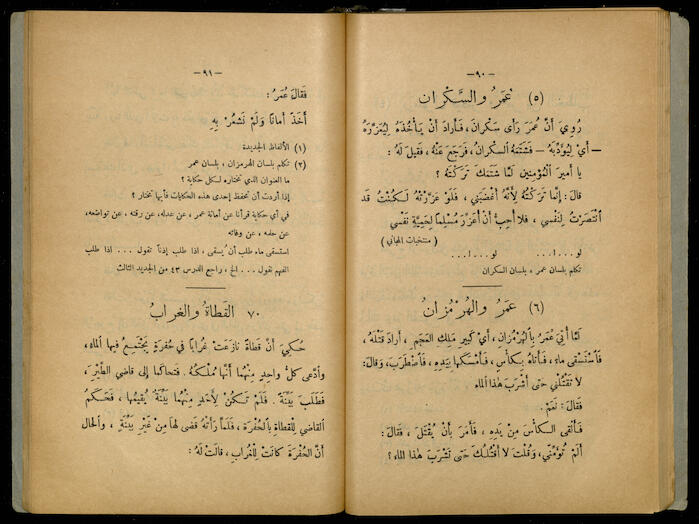 — ٩٠ —
(٥) عُمَرُ والسَّكْران
رُوِيَ أَنَّ عُمَرَ رَأَى سَكْرانَ، فَأَرادَ أَنْ يَأْخُذَهُ لِيُعَزِّرَهُ
— أَيْ لِيُؤَدِّبَهُ — فَشَتَمَهُ السَّكْرانُ، فَرَجَعَ عَنْهُ، فَقيلَ لَهُ :
يا أَميرَ الْمُؤْمِنينَ لَمَّا شَتَمَكَ تَرَكْتَهُ ؟
قالَ : إِنَّما تَرَكْتُهُ لِأَنَّهُ أَغْضَبَني ، فَلَوْ عَزَّرْتُهُ لَكُنْتُ قَدِ
انْتَصَرْتُ لِنَفْسي ، فَلا أُحِبُّ أَنْ أُعَزِّرَ مُسْلِمًا لِحَمِيَّةِ نَفْسي
( منتخبات المجاني )
لو...ا... لو...ا...
تكلم بلسان عمر ، بلسان السكران
(٦) عُمَرُ والهُرْمُزان
لَمَّا أُتِيَ عُمَرُ بِالْهُرْمُزانِ ، أَيْ كَبيرِ مَلِكِ العَجَمِ ، أَرادَ قَتْلَهُ ،
فَاسْتَسْقى ماءً ، فَأَتاهُ بِكَأْسٍ ، فَأَمْسَكَها بِيَدِهِ ، فَاضْطَرَبَ ، وَقالَ :
لا تَقْتُلْني حَتَّى أَشْرَبَ هٰذا الماء
فَقالَ : نَعَمْ .
فَأَلْقى الكَأْسَ مِنْ يَدِهِ ، فَأَمَرَ بِأَنْ يُقْتَلَ ، فَقالَ :
أَلَمْ تُؤَمِّنِّي ، وَقُلْتَ لا أَقْتُلُكَ حَتَّى تَشْرَبَ هٰذا الماء ؟
— ٩١ —
فَقالَ عُمَرُ :
أَخَذَ أَمانًا وَلَمْ نَشْعُرْ بِهِ
(١) الألفاظ الجديدة
(٢) تكلم بلسان الهرمزان ، بلسان عمر
ما العنوان الذي تختاره لكل حكاية ؟
إذا أردت أن تحفظ إحدى هذه الحكايات فأيها تختار ؟
في أي حكاية قرأنا عن أمانة عمر ، عن عدله ، عن رقته ، عن تواضعه ،
عن حلمه ، عن وفائه
استسقى ماء طلب أن يُسقى ، اذا طلب إذناً تقول ... اذا طلب
الفهم تقول ... الخ ، راجع الدرس ٤٣ من الجديد الثالث
٧٠ القَطاةُ والغُراب
حُكِيَ أَنَّ قَطاةً نازَعَتْ غُرابًا في حُفْرَةٍ يَجْتَمِعُ فيها الماء ،
وادَّعى كُلُّ واحِدٍ مِنْهُما أَنَّها مُلْكُهُ . فَتَحاكَما إِلى قاضي الطَّيْرِ ،
فَطَلَبَ بَيِّنَةً . فَلَمْ تَكُنْ لِأَحَدٍ مِنْهُما بَيِّنَةٌ يُقيمُها ، فَحَكَمَ
القاضي لِلْقَطاةِ بِالْحُفْرَة ، فَلَمَّا رَأَتْهُ قَضى لَها مِنْ غَيْرِ بَيِّنَةٍ ، والحال
أَنَّ الحُفْرَةَ كانَتْ لِلْغُراب ، قالَتْ لَهُ :